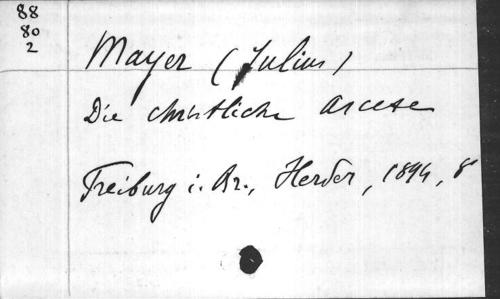 88
80
2
Mayer (Julius)
Die christliche Ascese
Freiburg i. Br., Herder, 1894, 8°